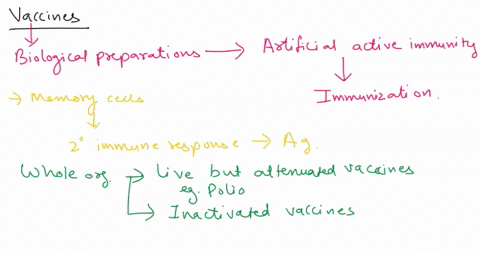 Vaccines
Biological preparations → Artificial active immunity
Immunization.
→ Memory cells
2° immune response → Ag.
Whole org. → Live but attenuated vaccines
eg. Polio
→ Inactivated vaccines